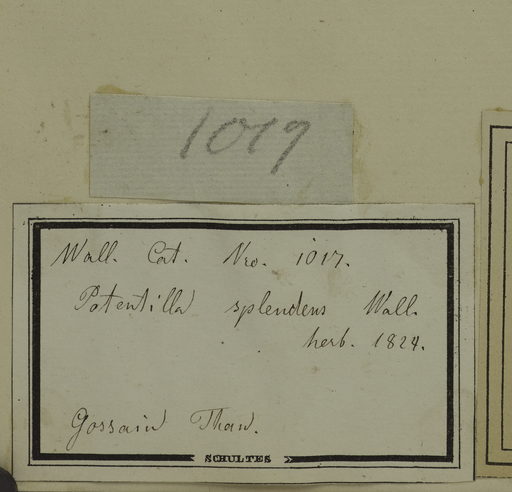 1019
Wall. Cat. Nro. 1017.
Potentilla splendens Wall.
herb. 1824.
Gossain Than.
SCHULTES